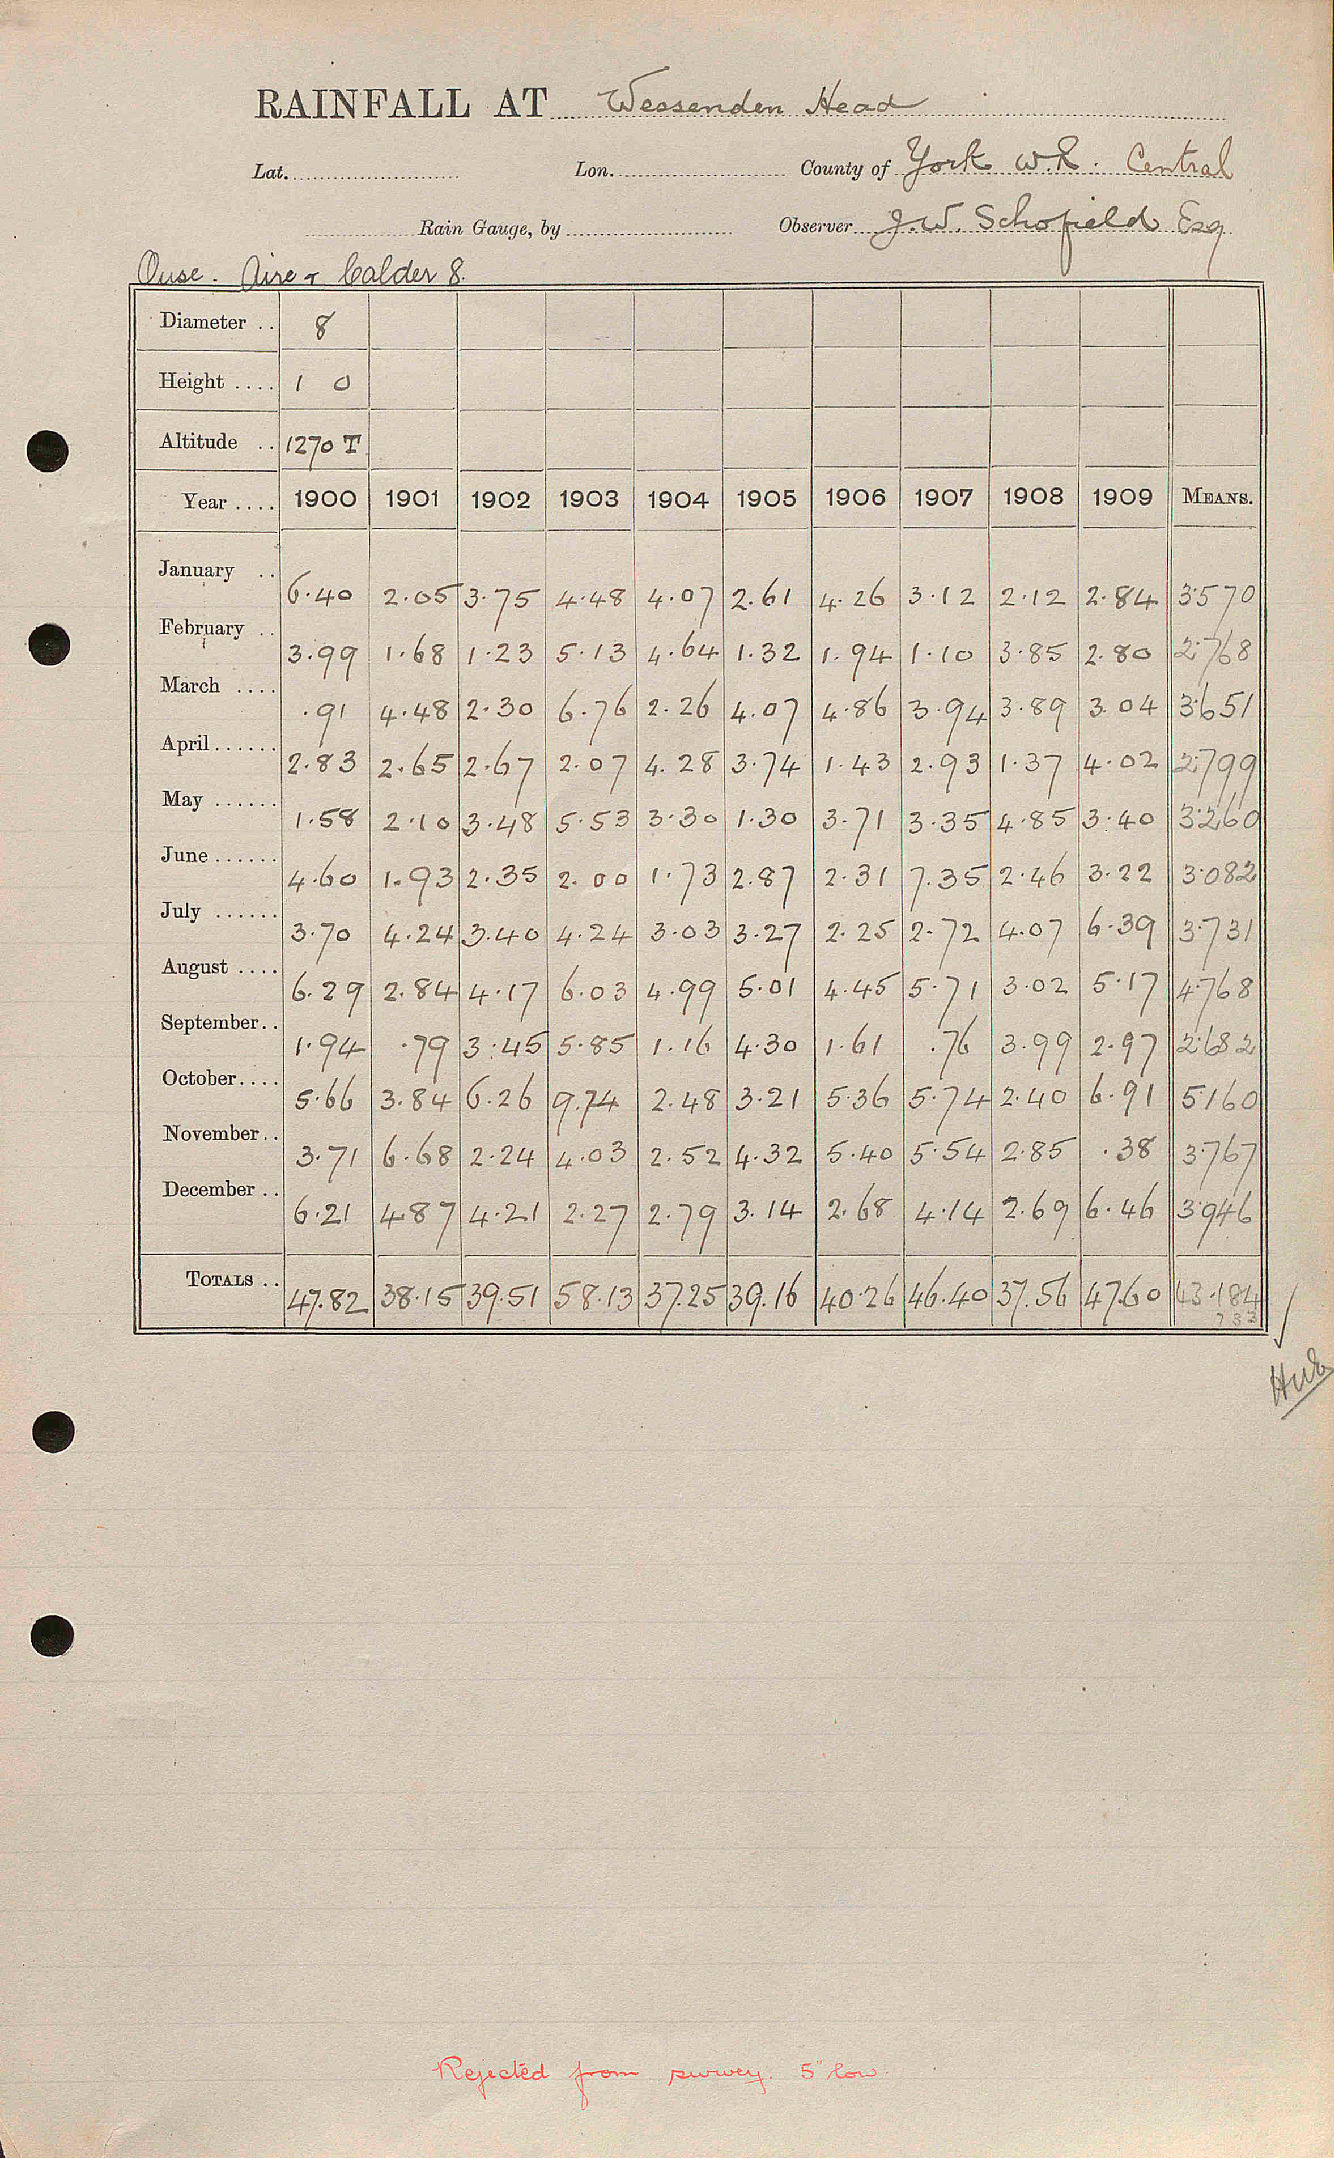 RAINFALL AT Wessenden Head
Lat. Lon. County of York W.R. Central
Rain Gauge, by Observer J.W. Schofield Esq
Ouse. Aire & Calder 8.
Diameter .. 8
Height .... 1 0
Altitude .. 1270 T
Year .... 1900 1901 1902 1903 1904 1905 1906 1907 1908 1909 MEANS.
January .. 6.40 2.05 3.75 4.48 4.07 2.61 4.26 3.12 2.12 2.84 3.570
February .. 3.99 1.68 1.23 5.13 4.64 1.32 1.94 1.10 3.85 2.80 2.768
March .... .91 4.48 2.30 6.76 2.26 4.07 4.86 3.94 3.89 3.04 3.651
April ...... 2.83 2.65 2.67 2.07 4.28 3.74 1.43 2.93 1.37 4.02 2.799
May ...... 1.58 2.10 3.48 5.53 3.30 1.30 3.71 3.35 4.85 3.40 3.260
June ...... 4.60 1.93 2.35 2.00 1.73 2.87 2.31 7.35 2.46 3.22 3.082
July ...... 3.70 4.24 3.40 4.24 3.03 3.27 2.25 2.72 4.07 6.39 3.731
August .... 6.29 2.84 4.17 6.03 4.99 5.01 4.45 5.71 3.02 5.17 4.768
September .. 1.94 .79 3.45 5.85 1.16 4.30 1.61 .76 3.99 2.97 2.682
October .... 5.66 3.84 6.26 9.74 2.48 3.21 5.36 5.74 2.40 6.91 5.160
November .. 3.71 6.68 2.24 4.03 2.52 4.32 5.40 5.54 2.85 .38 3.767
December .. 6.21 4.87 4.21 2.27 2.79 3.14 2.68 4.14 2.69 6.46 3.946
TOTALS .. 47.82 38.15 39.51 58.13 37.25 39.16 40.26 46.40 37.56 47.60 43.184
Rejected from survey. 5" low.